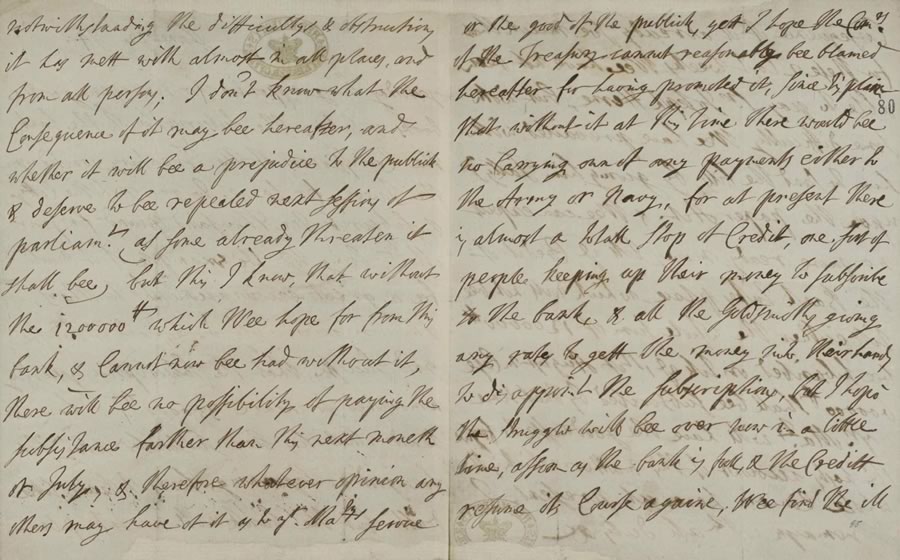 notwithstanding the difficultys & obstruction
it has mett with almost in all places, and
from all persons. I don't know what the
Consequence of it may bee hereafter, and
whether it will bee a prejudice to the publick
& deserve to bee repealed next session of
parliamt. as some already threaten it
shall bee, but this I know, that without
the 1200000 which Wee hope for from this
bank, & Cannot now bee had without it,
there will bee no possibility of paying the
subsistance farther than this next moneth
of July, & therefore whatever opinion any
others may have of it as to yr Matys service
or the good of the publick, yett I hope the Comrs
of the Treasury cannot reasonably bee blamed
hereafter for having promoted it, since tis plain
80
that without it at this time there would bee
no Carrying on of any payments either to
the Army or Navy, for at present there
is almost a totall stop of Credit, one sort of
people keeping up their money to subscribe
to the bank, & all the Goldsmiths giving
any rates to gett the money into their hands
to disappoint the subscriptions, but I hope
the struggle will bee over now in a little
time, assoon as the bank is full, & the Creditt
resume its Course againe, Wee find the ill